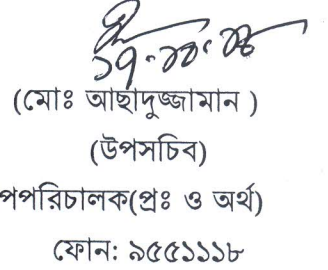 ১৭.১০.১৯
(মোঃ আছাদুজ্জামান )
(উপসচিব)
পপরিচালক(প্রঃ ও অর্থ)
ফোন: ৯৫৫১১১৮